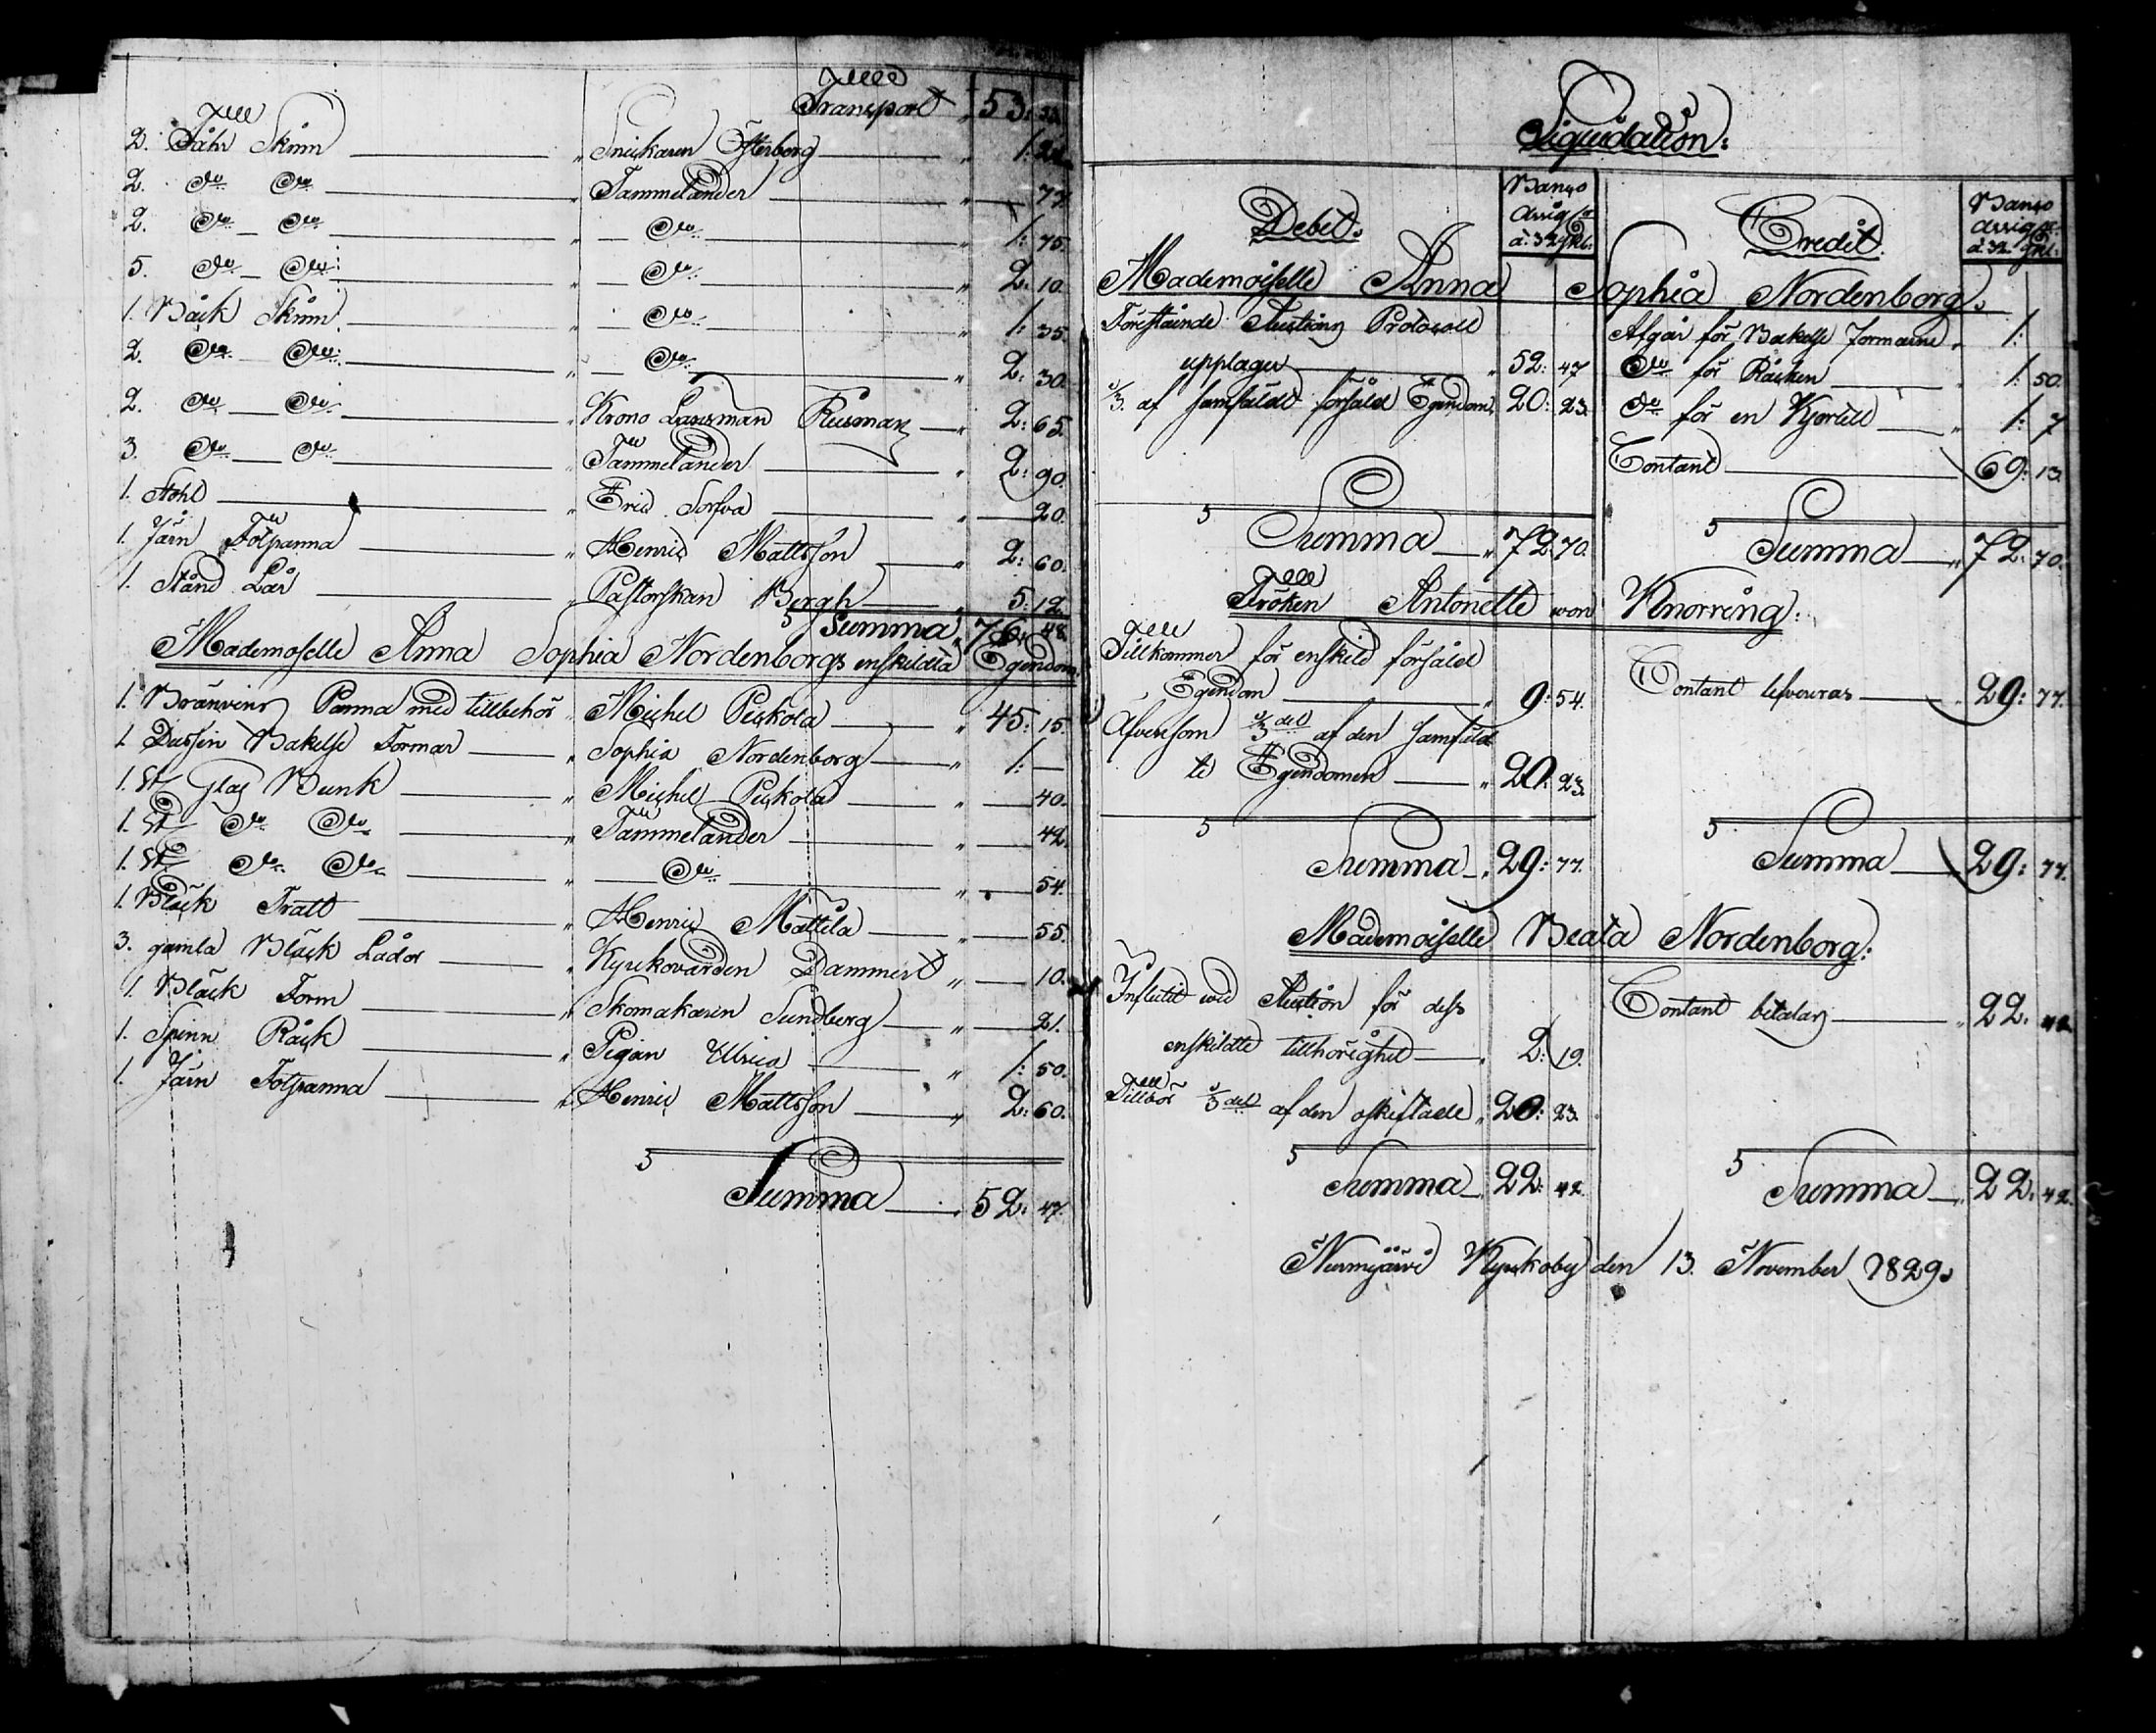 Transport 53:
2. Fåhr Skinn Snickaren Österberg 1:
2. Do Do Tammelander 77.
2. Do Do Do 1: 75.
5. Do Do Do 2: 10.
1. Båck Skinn Do 1: 35.
2. Do Do Do 2: 30.
2. Do Do Krono Länsman Reisman 2: 65.
3. Do Do Tammelander 2: 90.
1. Stohl Eric Sorfva 20.
1. Järn Fotpanna Henric Mattsson 2: 60.
1. Stånd Lår Pastorskan Bergh 5: 12.
Summa 76: 48.
Mademoselle Anna Sophia Nordenborgs enskildta Egendom.
1. Bränvins Panna med tillbehör Michel Pickola 45: 15.
1. Dussin Bakelse Formar Sophia Nordenborg 1: —
1. St Glas Bunk Michel Pickola 40.
1. St Do Do Tammelander 42.
1. St Do Do Do 54.
1. Bläck Tratt Henric Mattila 55.
3. gamla Bläck Lådor Kyrkovärden Dammert 10.
1. Bläck Form Skomakaren Sundberg 21.
1. Spinn Råck Pigan Ulrica 1: 50.
1. Järn Fotpanna Henric Mattsson 2: 60.
Summa 52: 47.
Liquidation:
Debet. Banco Assig à 32 Credit. Banco Assig à 32
Mademoiselle Anna Sophia Nordenborg.
Förestående Auctions Protocoll Afgår för Bakelse formarne 1:
upptager 52: 47 Do för Råcken 1: 50.
1/3. af samfäldt försåld Egendom. 20: 23. Do för en Kjortell 1: 7
Contant 69: 13.
Summa 72: 70. Summa 72: 70.
Fröken Antonette von Knorring:
Tillkommer för enskild försåld
Egendom 9: 54. Contant lefvereras 29: 77.
Äfvensom 1/3 del af den samfäld
te Egendomen 20: 23.
Summa 29: 77. Summa 29: 77.
Mademoiselle Beata Nordenborg:
Influtit wid Auction för dess Contant betalas 22: 42.
enskildte tillhörighet 2: 19.
Tillkör 1/3 del af den oskiftade 20: 23.
Summa 22: 42. Summa 22: 42.
Nurmijärvi Kyrkoby den 13. November 1829.